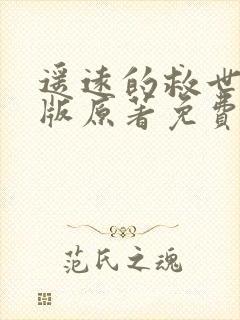 遥远的救世
版原著免費
范氏之魂